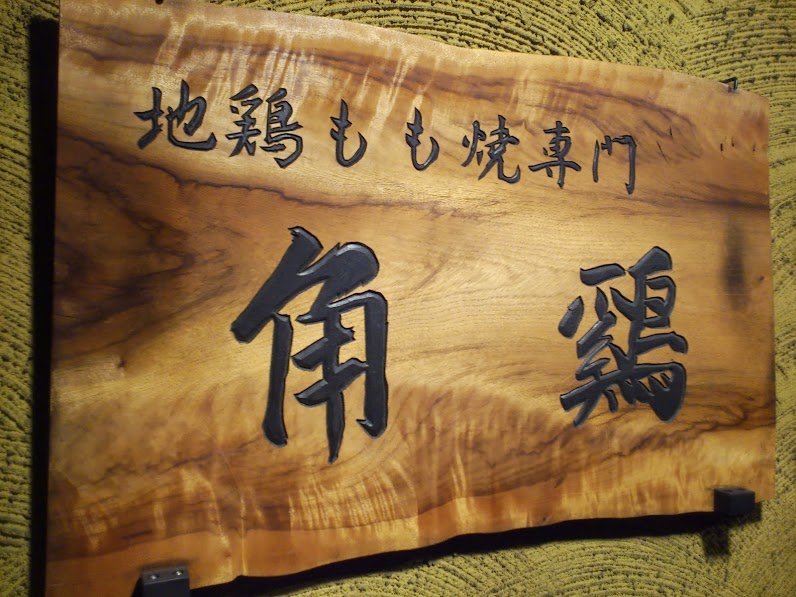 地鶏もも焼専門
角鶏